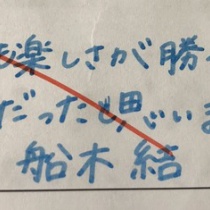 楽しさが勝
だったと思いま
船木結